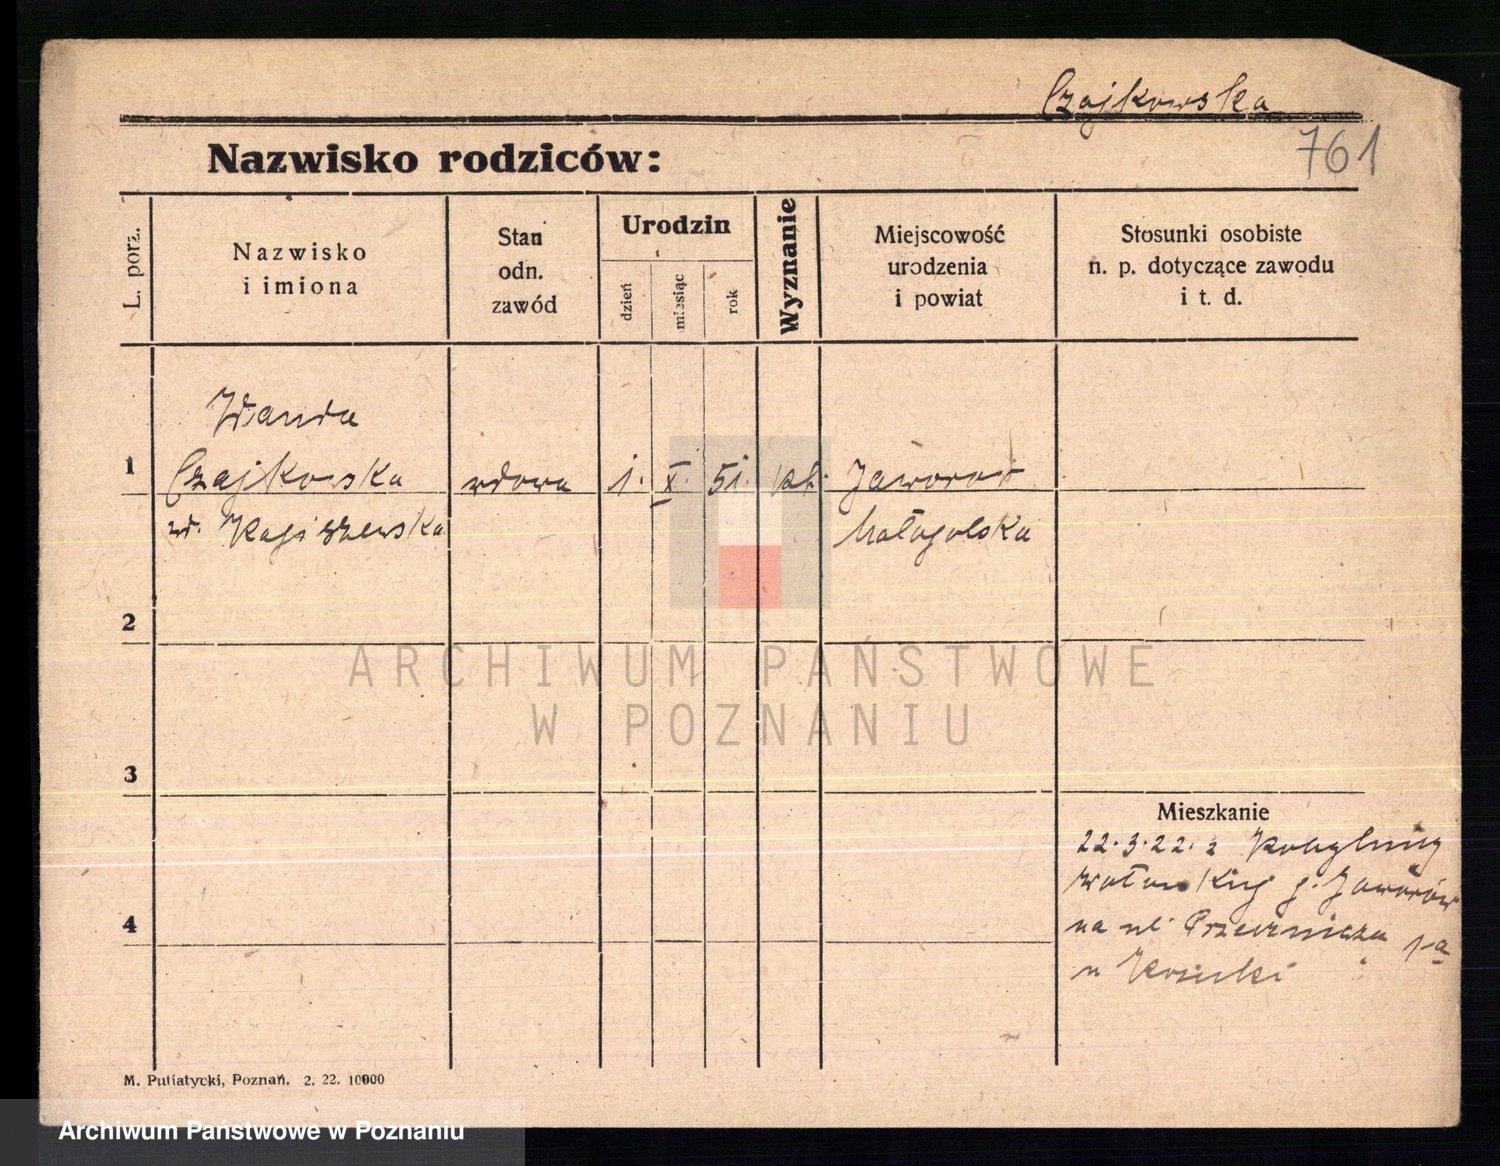 Czajkowska
761
Nazwisko rodziców:
L. porz.
Nazwisko
i imiona
Stan
odn.
zawód
Urodzin
dzień
miesiąc
rok
Wyznanie
Miejscowość
urodzenia
i powiat
Stosunki osobiste
n. p. dotyczące zawodu
i t. d.
Wanda
1 Czajkowska wdowa 1. X. 51. kat. Jaworów
Małopolska
2
3
4
Mieszkanie
22.3.22. z
Jaworów
na ul
u
M. Putiatycki, Poznań. 2. 22. 10000
ARCHIWUM PAŃSTWOWE
W POZNANIU
Archiwum Państwowe w Poznaniu